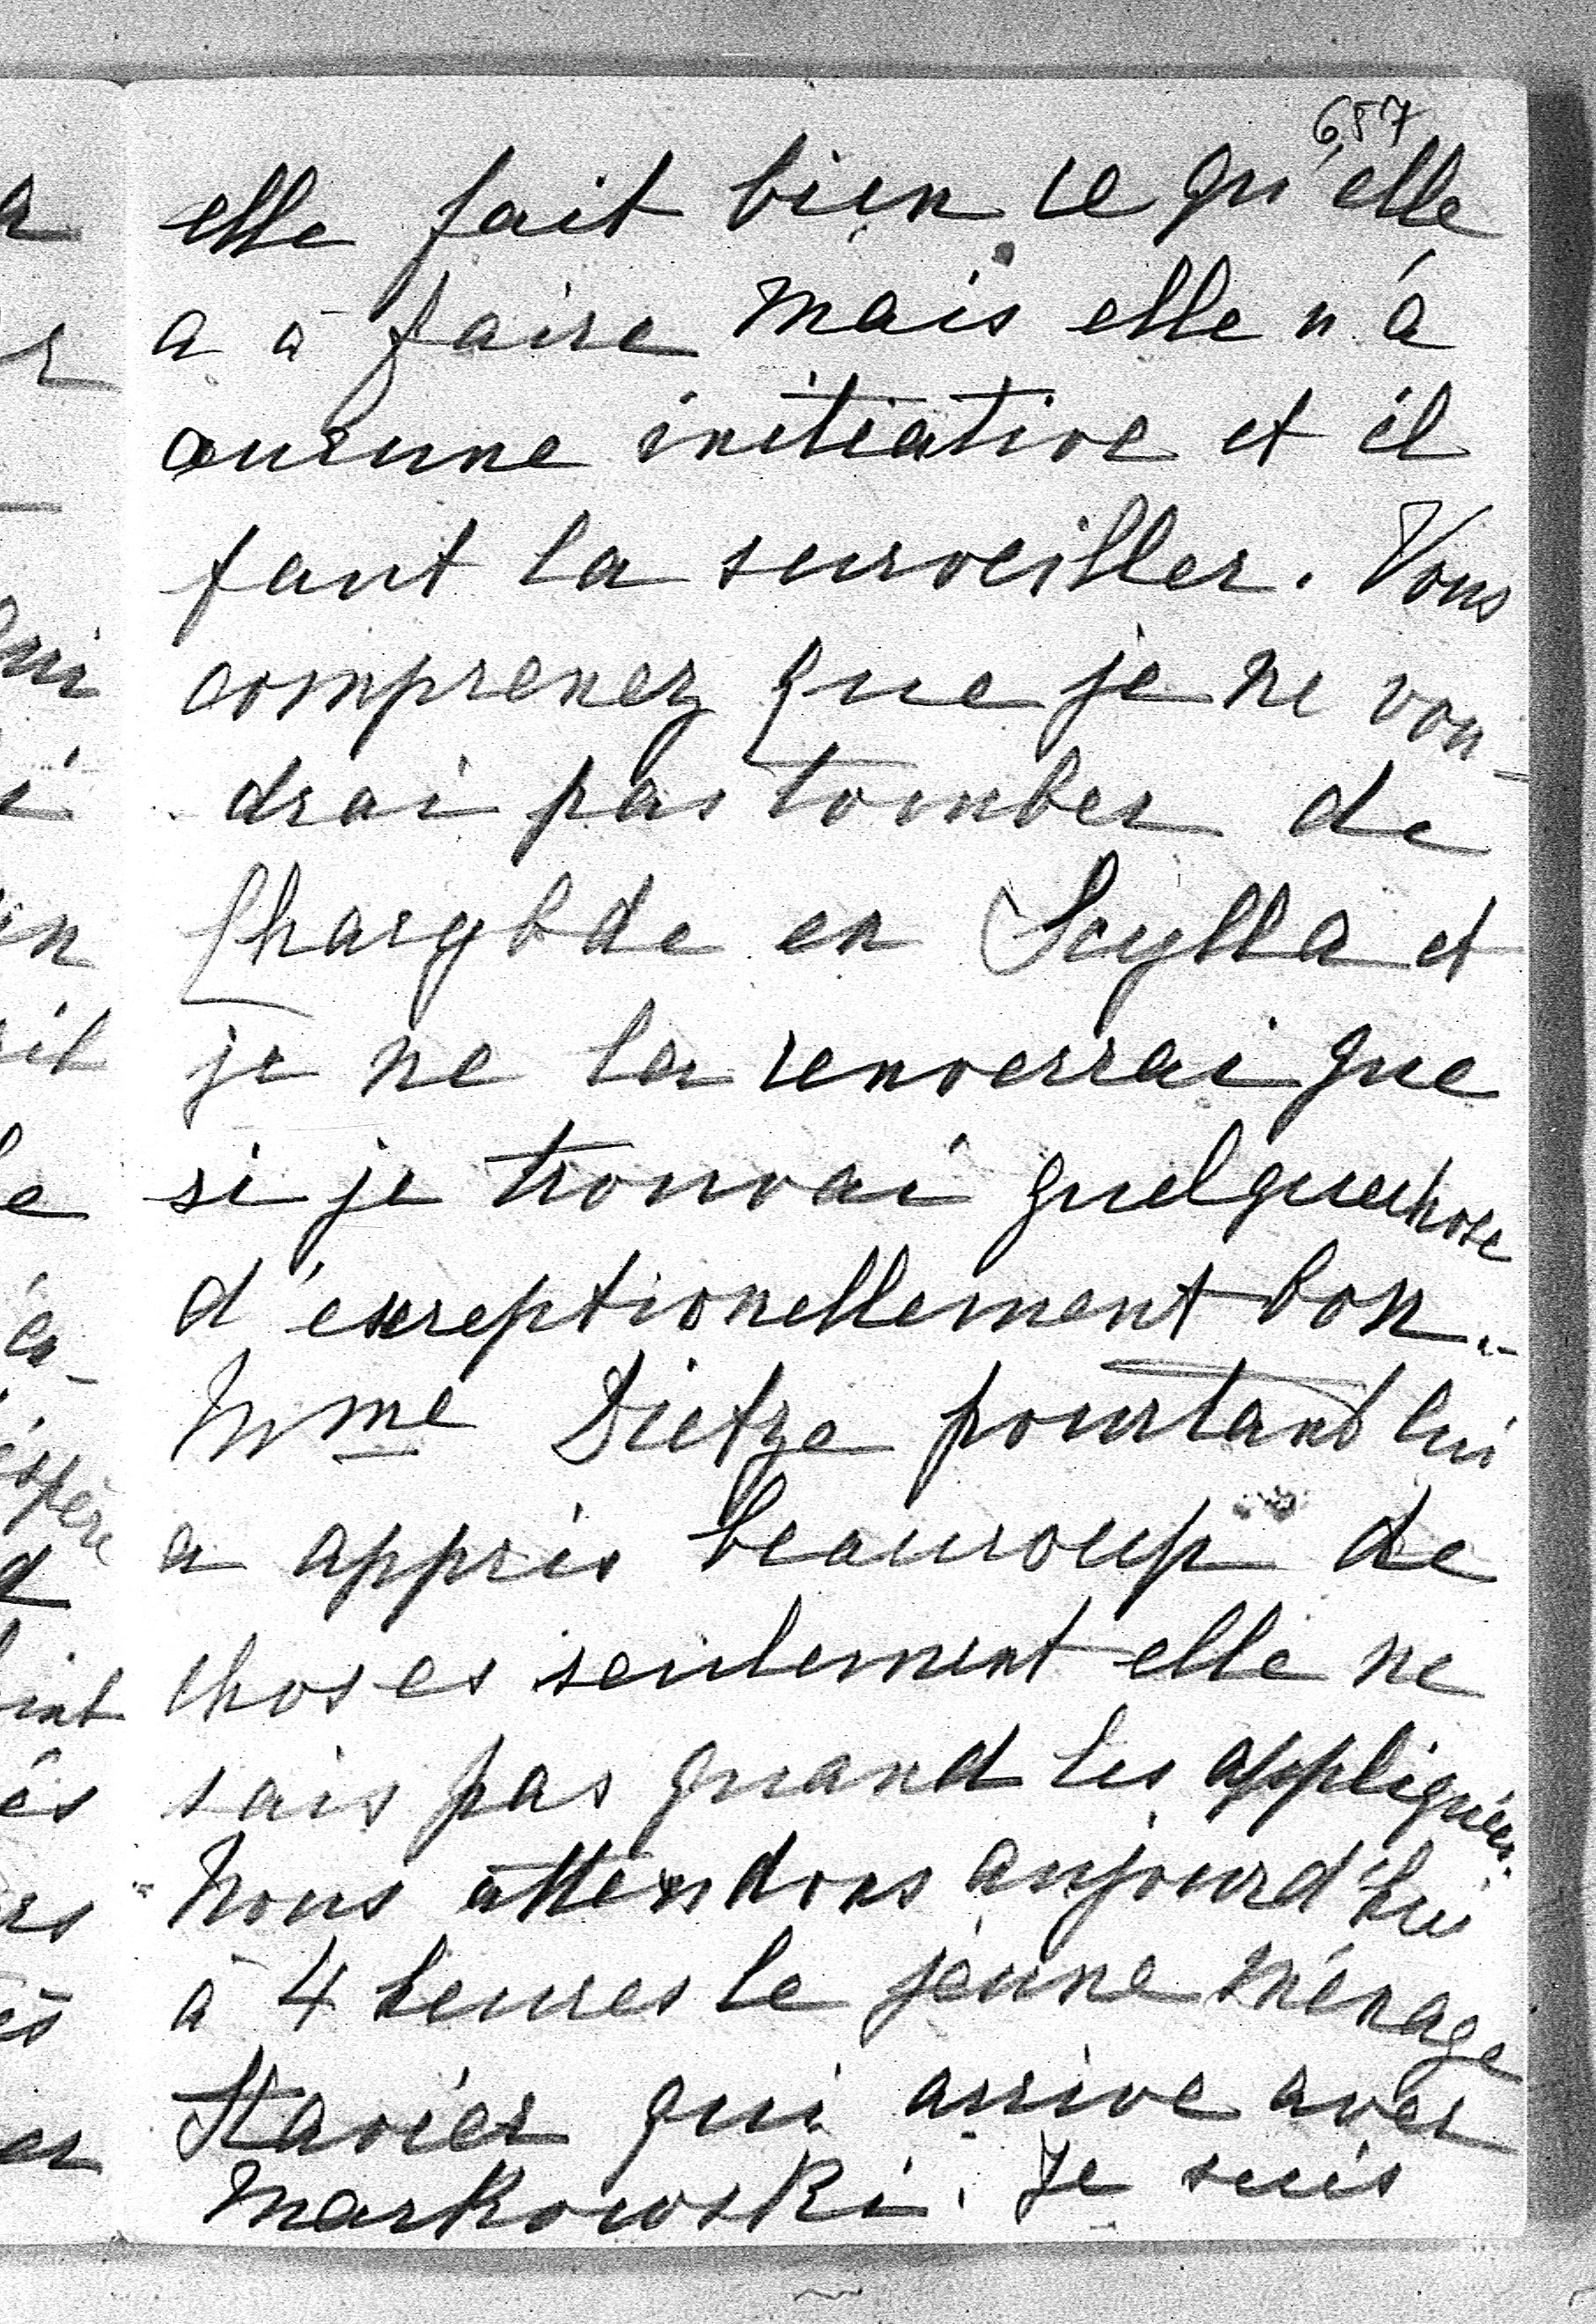 657
elle fait bien ce qu'elle
a à faire mais elle n'a
aucune initiative et il
faut la surveiller. Vous
comprenez que je ne vou-
drai pas tomber de
Charybde en Scylla et
je ne la renverrai que
si je trouvai quelquechose
d'éxceptionellement bon.-
Mme Dietze pourtant lui
a appris beaucoup de
choses seulement elle ne
sais pas quand les appliquer.
Nous attendons aujourd'hui
à 4 heures le jeune ménage
qui arrive avec
Markowski. Je suis